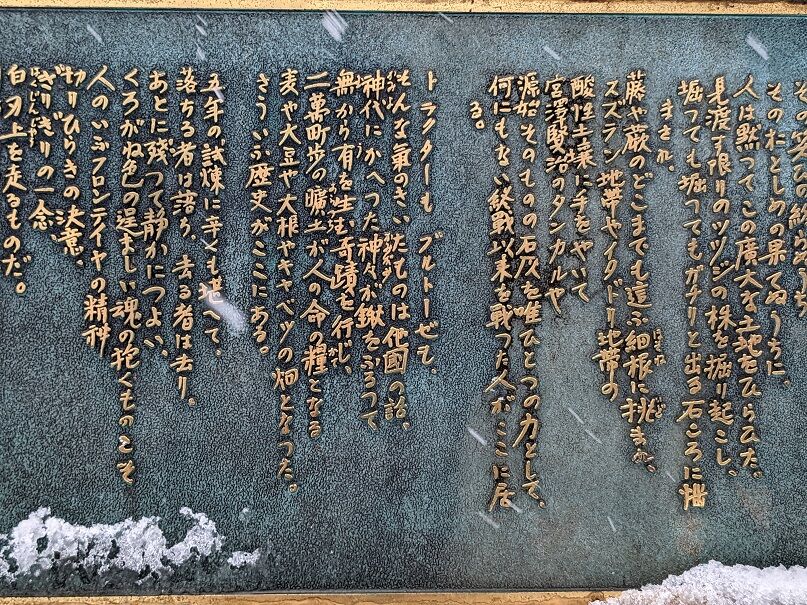 人は黙つてこの廣大な土地をひらひた。
見渡す限りのツツジの株を掘り起こし、
掘つても掘つてもガチリと出る石ころに悩
まされ、
藤や蕨のどこまでも這ふ細根に挑まれ、
スズラン地帯やイタドリ地帯の
酸性土壌に手をやいて
宮澤賢治のタンカルや
源始そのものの石灰を唯ひとつの力として、
何にもない終戦以来を戦つた人がここに居
る。
トラクターも ブルトーゼも、
そんな氣のきいたものは他國の話、
神代にかへつた神々が鍬をふるつて
無から有を生む奇蹟を行じ、
二萬町歩の曠土が人の命の糧となる
麦や大豆や大根やキャベツの畑となつた。
さういふ歴史がここにある。
五年の試煉に辛くも堪へて、
落ちる者は落ち、去る者は去り、
あとに残つて静かにつよい、
くろがね色の逞ましい魂の抱くものこそ
人のいふフロンテイヤの精神、
切りひらきの決意、
ぎりぎりの一念、
白刃上を走るものだ。